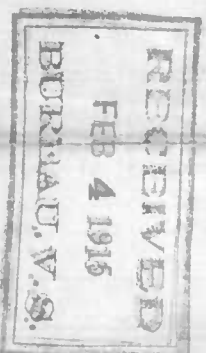 RECEIVED
FEB 4 1915
BUREAU. V. S.